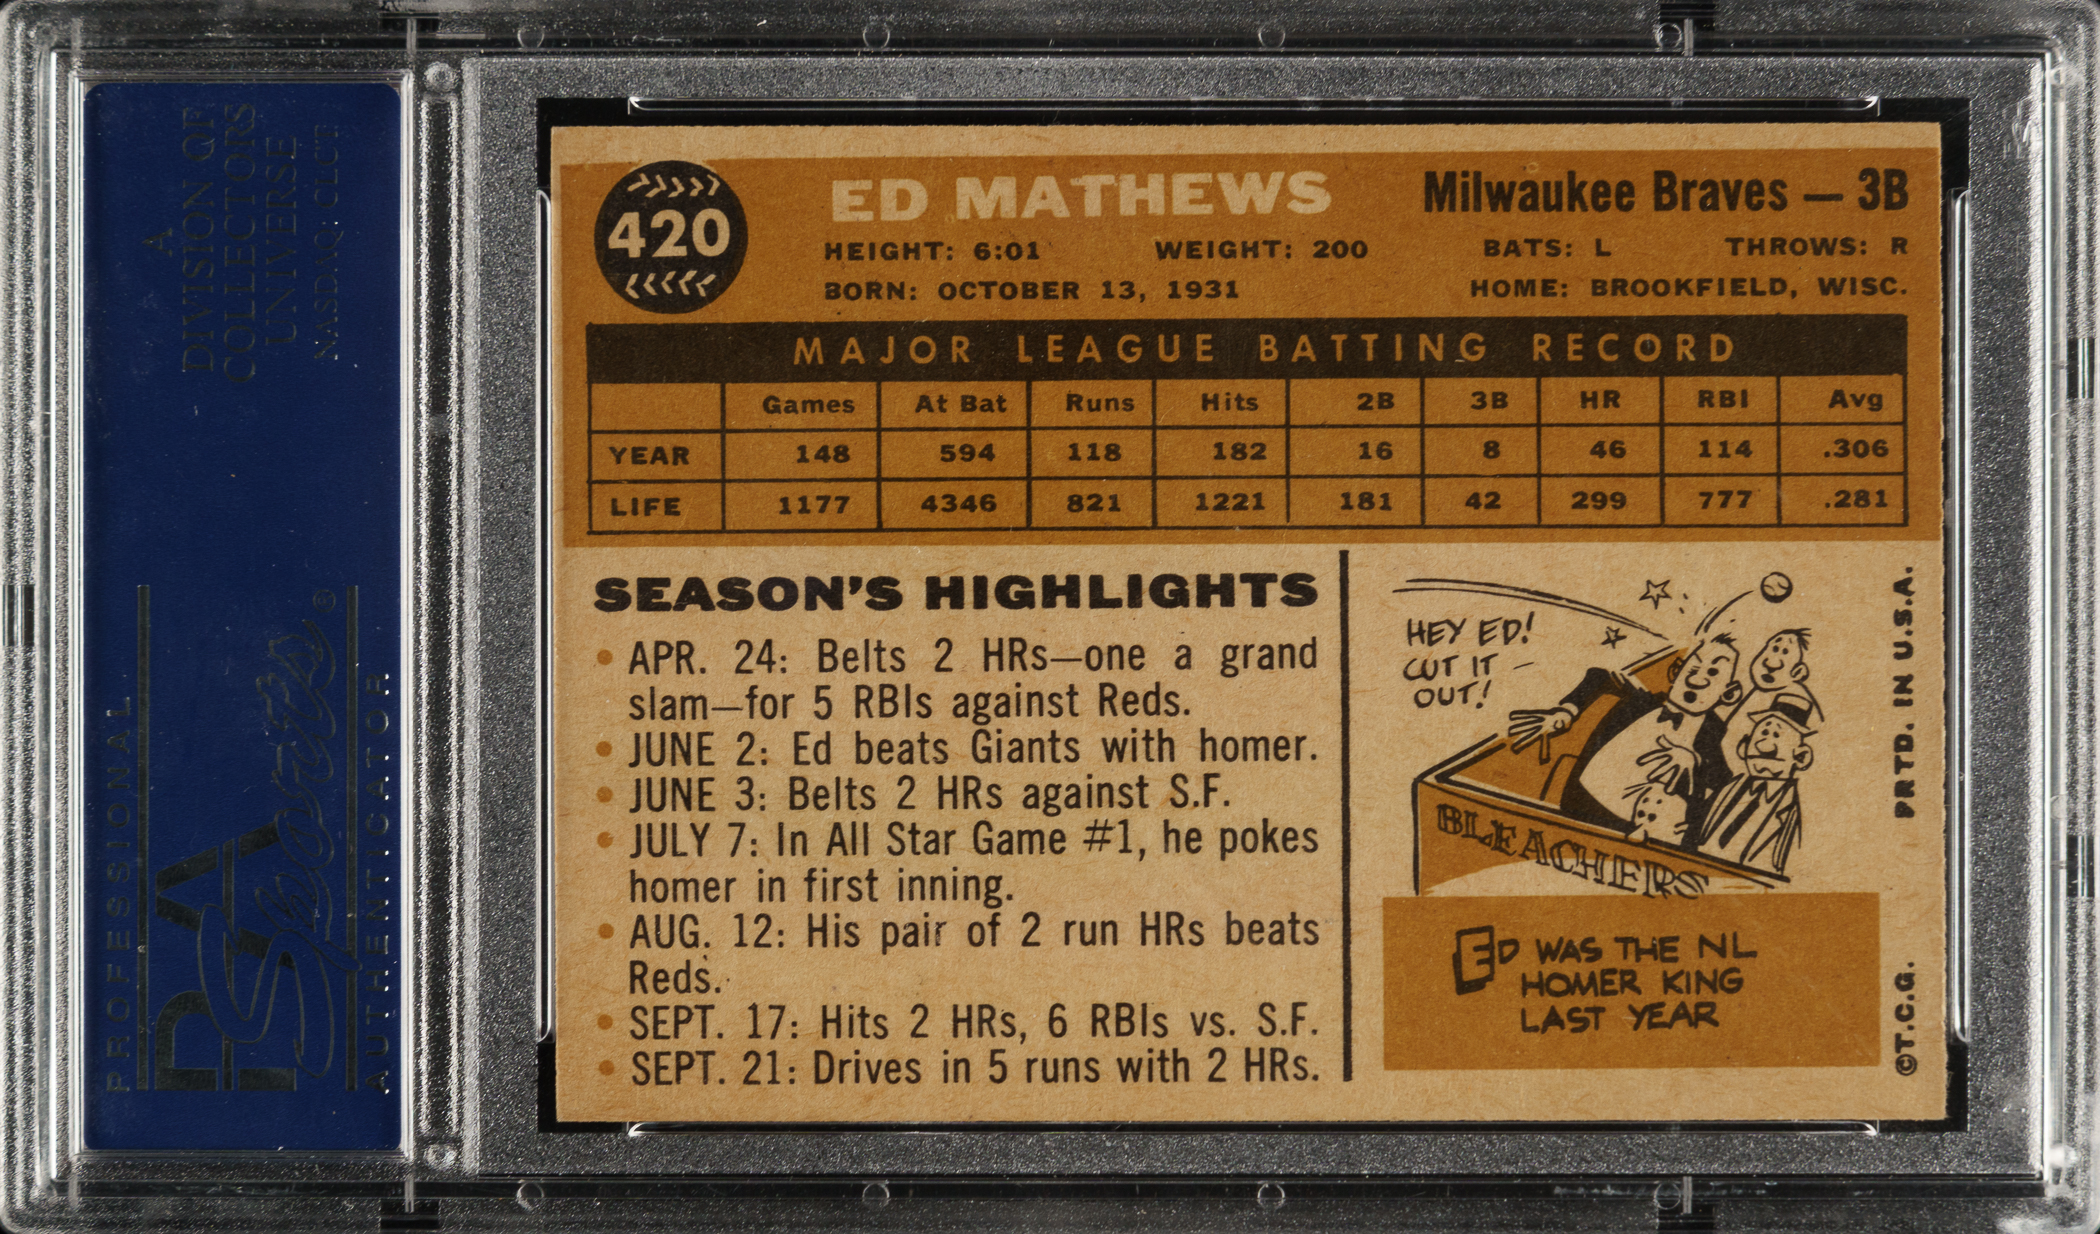 A
DIVISION OF
COLLECTORS
UNIVERSE
NASDAQ: CLCT
PROFESSIONAL
PSA
Sports®
AUTHENTICATOR
420
ED MATHEWS
Milwaukee Braves — 3B
HEIGHT: 6:01 WEIGHT: 200 BATS: L THROWS: R
BORN: OCTOBER 13, 1931 HOME: BROOKFIELD, WISC.
MAJOR LEAGUE BATTING RECORD
Games At Bat Runs Hits 2B 3B HR RBI Avg
YEAR 148 594 118 182 16 8 46 114 .306
LIFE 1177 4346 821 1221 181 42 299 777 .281
SEASON'S HIGHLIGHTS
• APR. 24: Belts 2 HRs—one a grand
slam—for 5 RBIs against Reds.
• JUNE 2: Ed beats Giants with homer.
• JUNE 3: Belts 2 HRs against S.F.
• JULY 7: In All Star Game #1, he pokes
homer in first inning.
• AUG. 12: His pair of 2 run HRs beats
Reds.
• SEPT. 17: Hits 2 HRs, 6 RBIs vs. S.F.
• SEPT. 21: Drives in 5 runs with 2 HRs.
HEY ED!
CUT IT —
OUT!
BLEACHERS
ED WAS THE NL
HOMER KING
LAST YEAR
©T.C.G. PRTD. IN U.S.A.